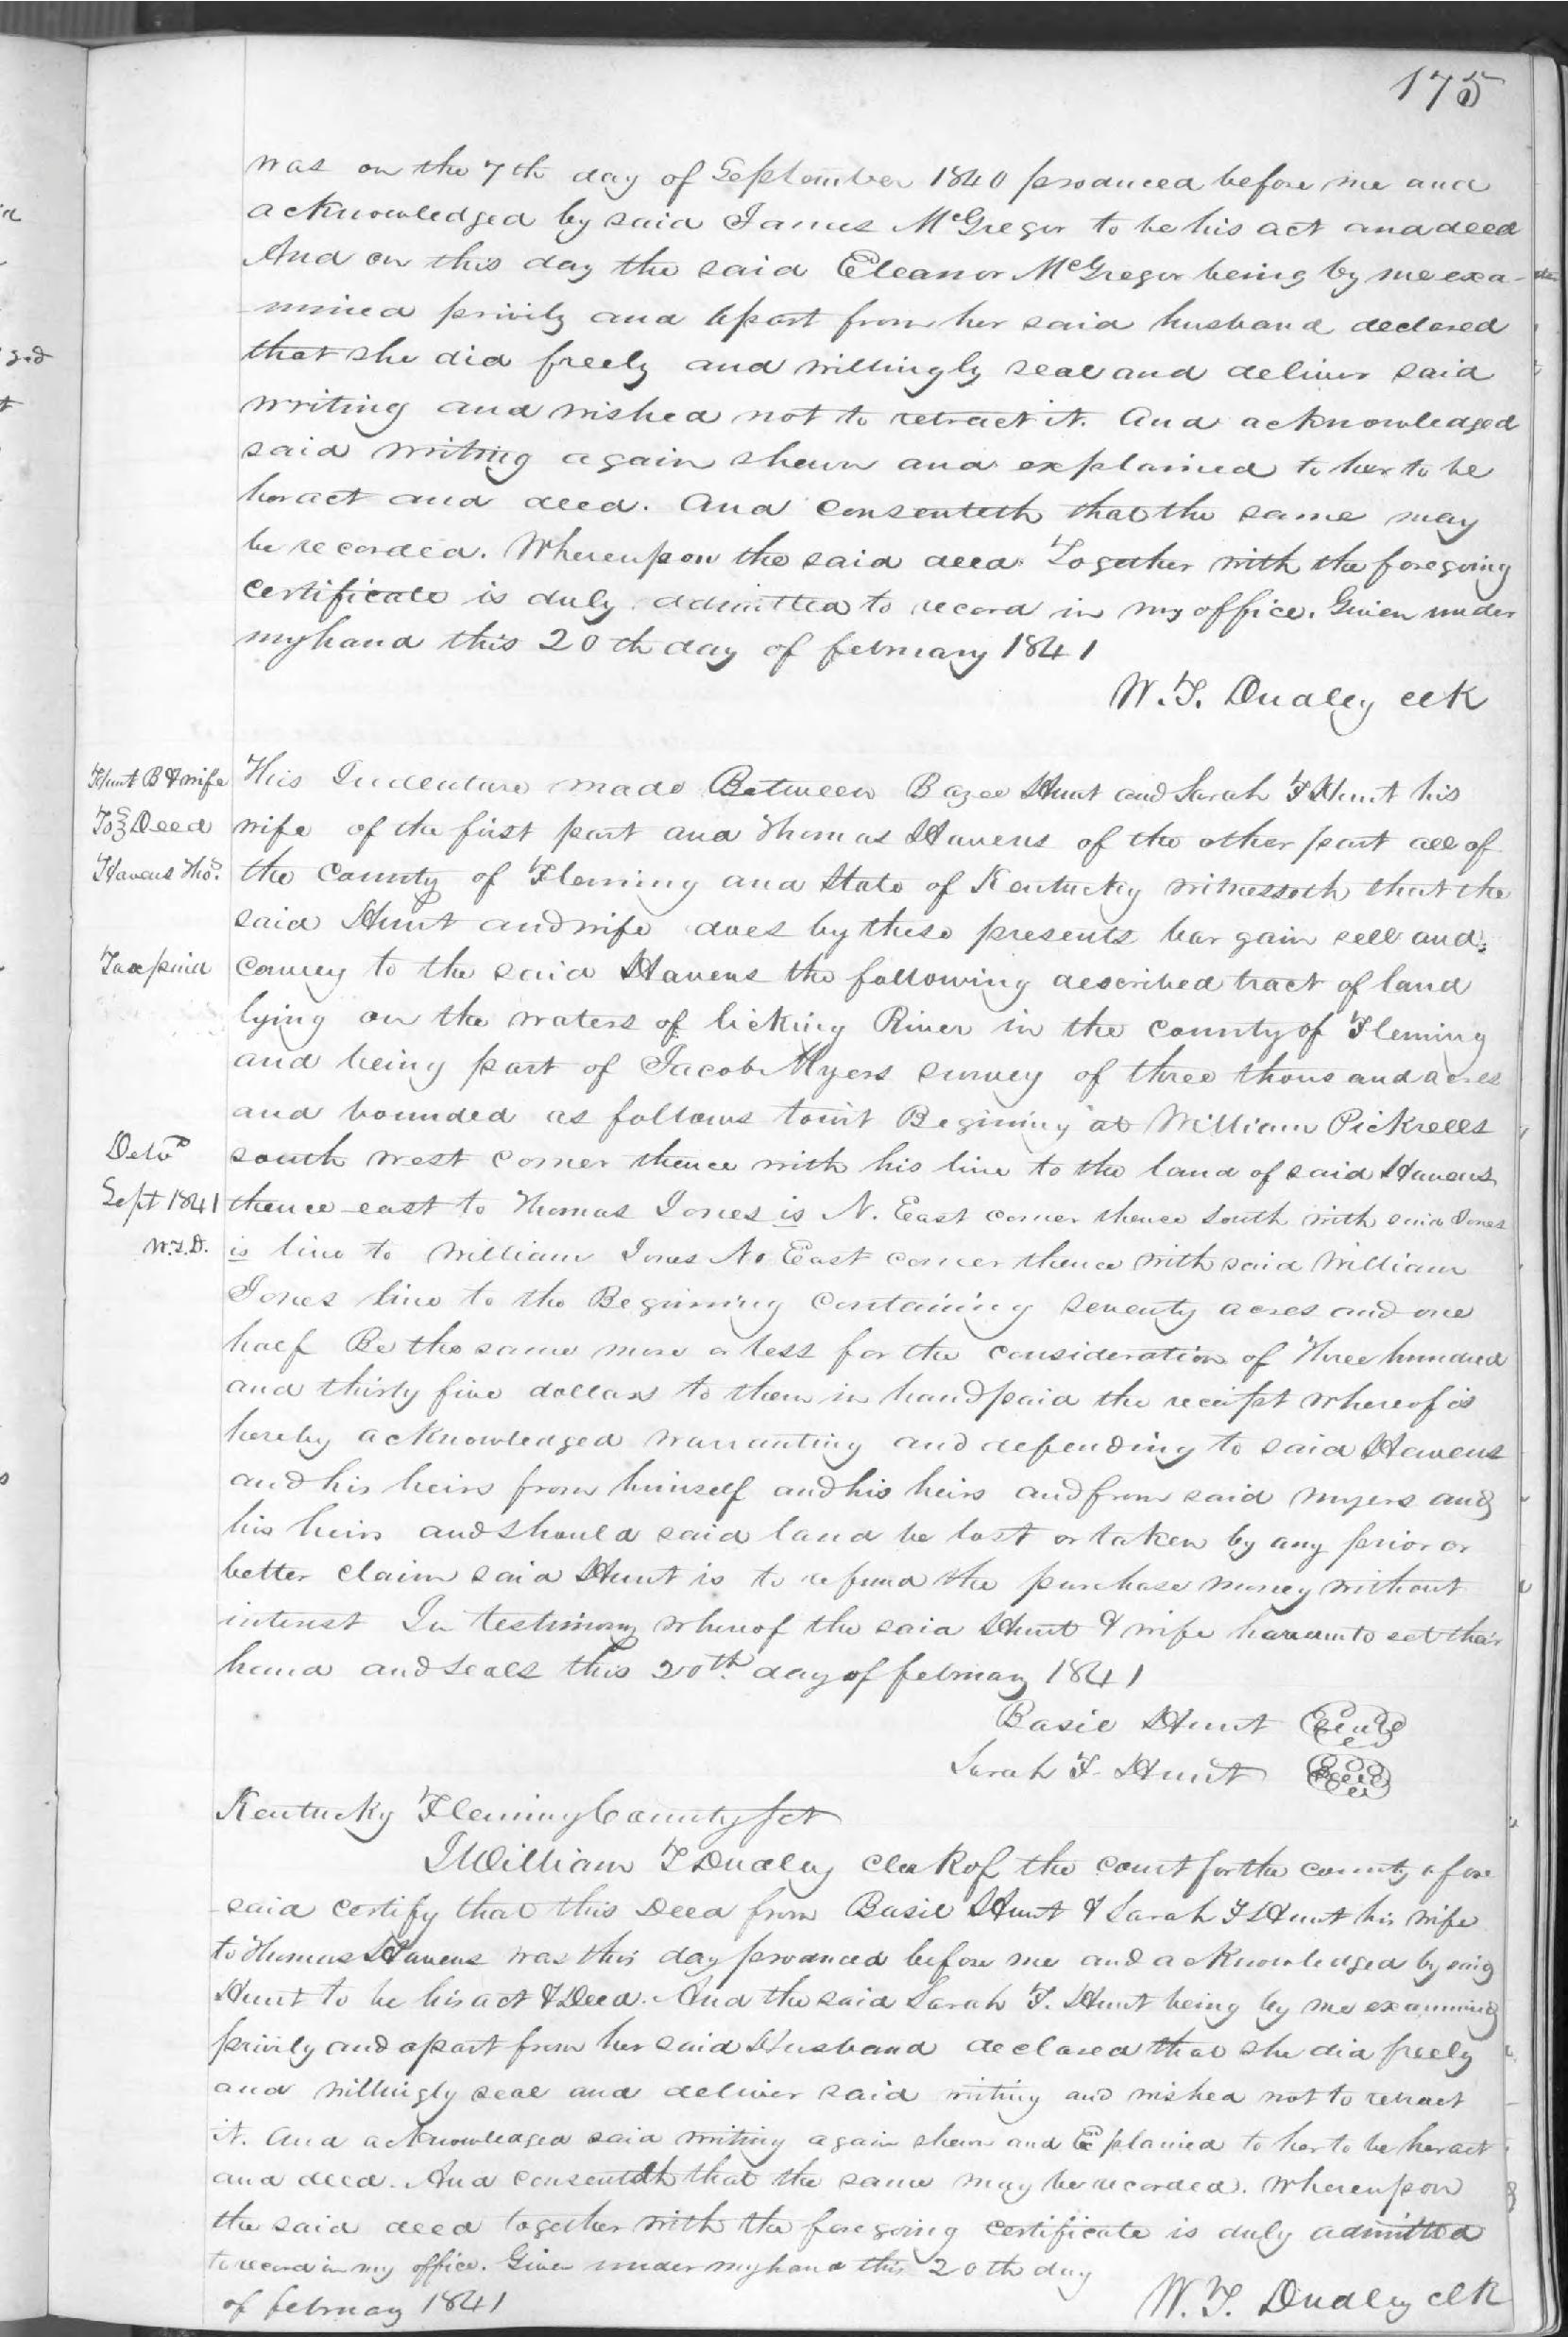 175
was on the 7th day of September 1840 produced before me and
acknowledged by said James McGregor to be his act and deed
And on this day the said Eleanor McGregor being by me exa-
mined privily and apart from her said husband declared
that she did freely and willingly seal and deliver said
writing and wished not to retract it. And acknowledged
said writing again shewn and explained to her to be
her act and deed. And consenteth that the same may
be recorded. Whereupon the said deed Together with the foregoing
certificate is duly admitted to record in my office. Given under
my hand this 20th day of february 1841
W. T. Dudley clk
Hunt B & wife
To } Deed
Havens Thos.
Tax paid
Delvd
Sept 1841
W.T.D.
This Indenture made Between Bazee Hunt and Sarah F Hunt his
wife of the first part and Thomas Havens of the other part all of
the County of Fleming and State of Kentucky witnesseth that the
said Hunt and wife does by these presents bargain sell and
convey to the said Havens the following described tract of land
lying on the waters of licking River in the county of Fleming
and being part of Jacob Myers survey of three thousand acres
and bounded as follows towit Begining at William Pickrells
south west corner thence with his line to the land of said Havens
thence east to Thomas Jones is N. East corner thence South with said Jones
is line to William Jones No East corner thence with said William
Jones line to the Beginning Containing seventy acres and one
half Be the same more or less for the consideration of Three hundred
and thirty five dollars to them in hand paid the receipt whereof is
hereby acknowledged warranting and defending to said Havens
and his heirs from himself and his heirs and from said myers and
his heirs and should said land be lost or taken by any prior or
better claim said Hunt is to refund the purchase money without
interest In testimony whereof the said Hunt & wife hereunto set their
hand and seals this 20th day of february 1841
Basil Hunt Seal
Sarah F. Hunt Seal
Kentucky Fleming County sct
I William T Dudley Clerk of the court for the county afore
said certify that this Deed from Basil Hunt & Sarah F Hunt his wife
to Thomas Havens was this day produced before me and acknowledged by said
Hunt to be his act & Deed. And the said Sarah F. Hunt being by me examined
privily and apart from her said Husband declared that she did freely
and willingly seal and deliver said writing and wished not to retract
it. And acknowledged said writing again shewn and Explained to her to be her act
and deed. And consenteth that the same may be recorded. Whereupon
the said deed together with the foregoing certificate is duly admitted
to record in my office. Given under my hand this 20th day
of february 1841
W. T. Dudley clk